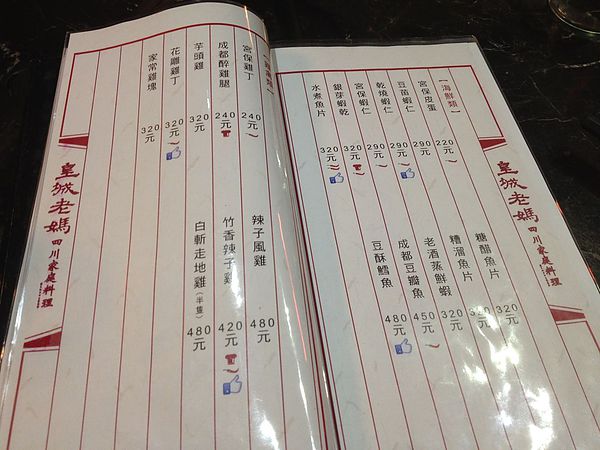 皇城老媽
四川家庭料理
【海鮮類】
宮保皮蛋 220元
豆苗蝦仁 290元
乾燒蝦仁 290元
宮保蝦仁 290元
銀芽蝦乾 320元
水煮魚片 320元
糖醋魚片 320元
糟溜魚片 320元
老酒蒸鮮蝦 320元
成都豆瓣魚 450元
豆酥鱈魚 480元
宮保雞丁 240元
成都醉雞腿 240元
芋頭雞 320元
花雕雞丁 320元
家常雞塊 320元
辣子風雞 480元
竹香辣子雞 420元
白斬走地雞(半隻) 480元
皇城老媽
四川家庭料理